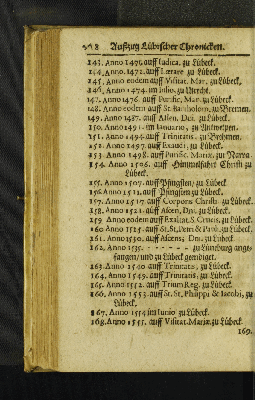 Außzug Lübischer Chronicken.
243. Anno 1470. auff Iudica, zu Lübeck.
244. Anno 1472. auff Lætare, zu Lübeck.
245. Anno eodem auff Visitat. Mar. zu Lübeck,
246. Anno 1474. im Iulio, zu Utrecht.
147. Anno 1476. auff Purific. Mar. zu Lübeck.
148. Anno eodem auff St. Bartholom. zu Bremen.
149. Anno 1487. auff Ascen. Dni. zu Lübeck.
150. Anno 1491. im Ianuario, zu Antworpen.
151. Anno 1494. auff Trinitatis, zu Bremen.
152. Anno 1497. auff Exaudi, zu Lübeck.
153. Anno 1498. auff Purific. Mariæ, zu Narva.
154. Anno 1506. auff Himmelfahrt Christi zu
Lübeck.
155. Anno 1507. auff Pfingsten, zu Lübeck.
156. Anno 1511. auff Pfingsten zu Lübeck.
157. Anno 1517. auff Corporis Christi zu Lübeck.
158. Anno 1521. auff Ascen. Dni. zu Lübeck.
159. Anno eodem auff Exaltat. S. Crucis, zu Lübeck.
160. Anno 1525. auff St. St. Petri & Paul. zu Lübeck.
161. Anno 1530. auff Ascens. Dni. zu Lübeck.
162. Anno 1535. - - - - - - zu Lüneburg ange-
fangen / und zu Lübeck geendiget.
163. Anno 1540. auff Trinitatis, zu Lübeck.
164. Anno 1549. auff Trinitatis, zu Lübeck.
165. Anno 1552. auff Trium Reg. zu Lübeck.
166. Anno 1553. auff St. St. Philippi & Iacobi, zu
Lübeck.
167. Anno 1554 im Iunio zu Lübeck.
168. Anno 1555. auff Visitat. Mariæ zu Lübeck
169.